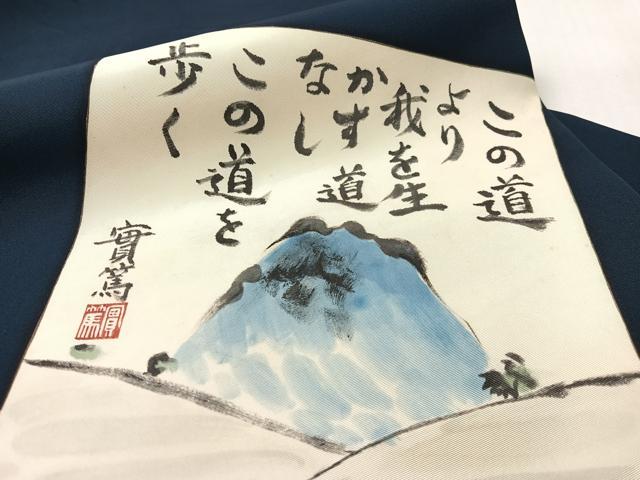 この道
より
我を生
かす道
なし
この道を
歩く
實篤
實篤